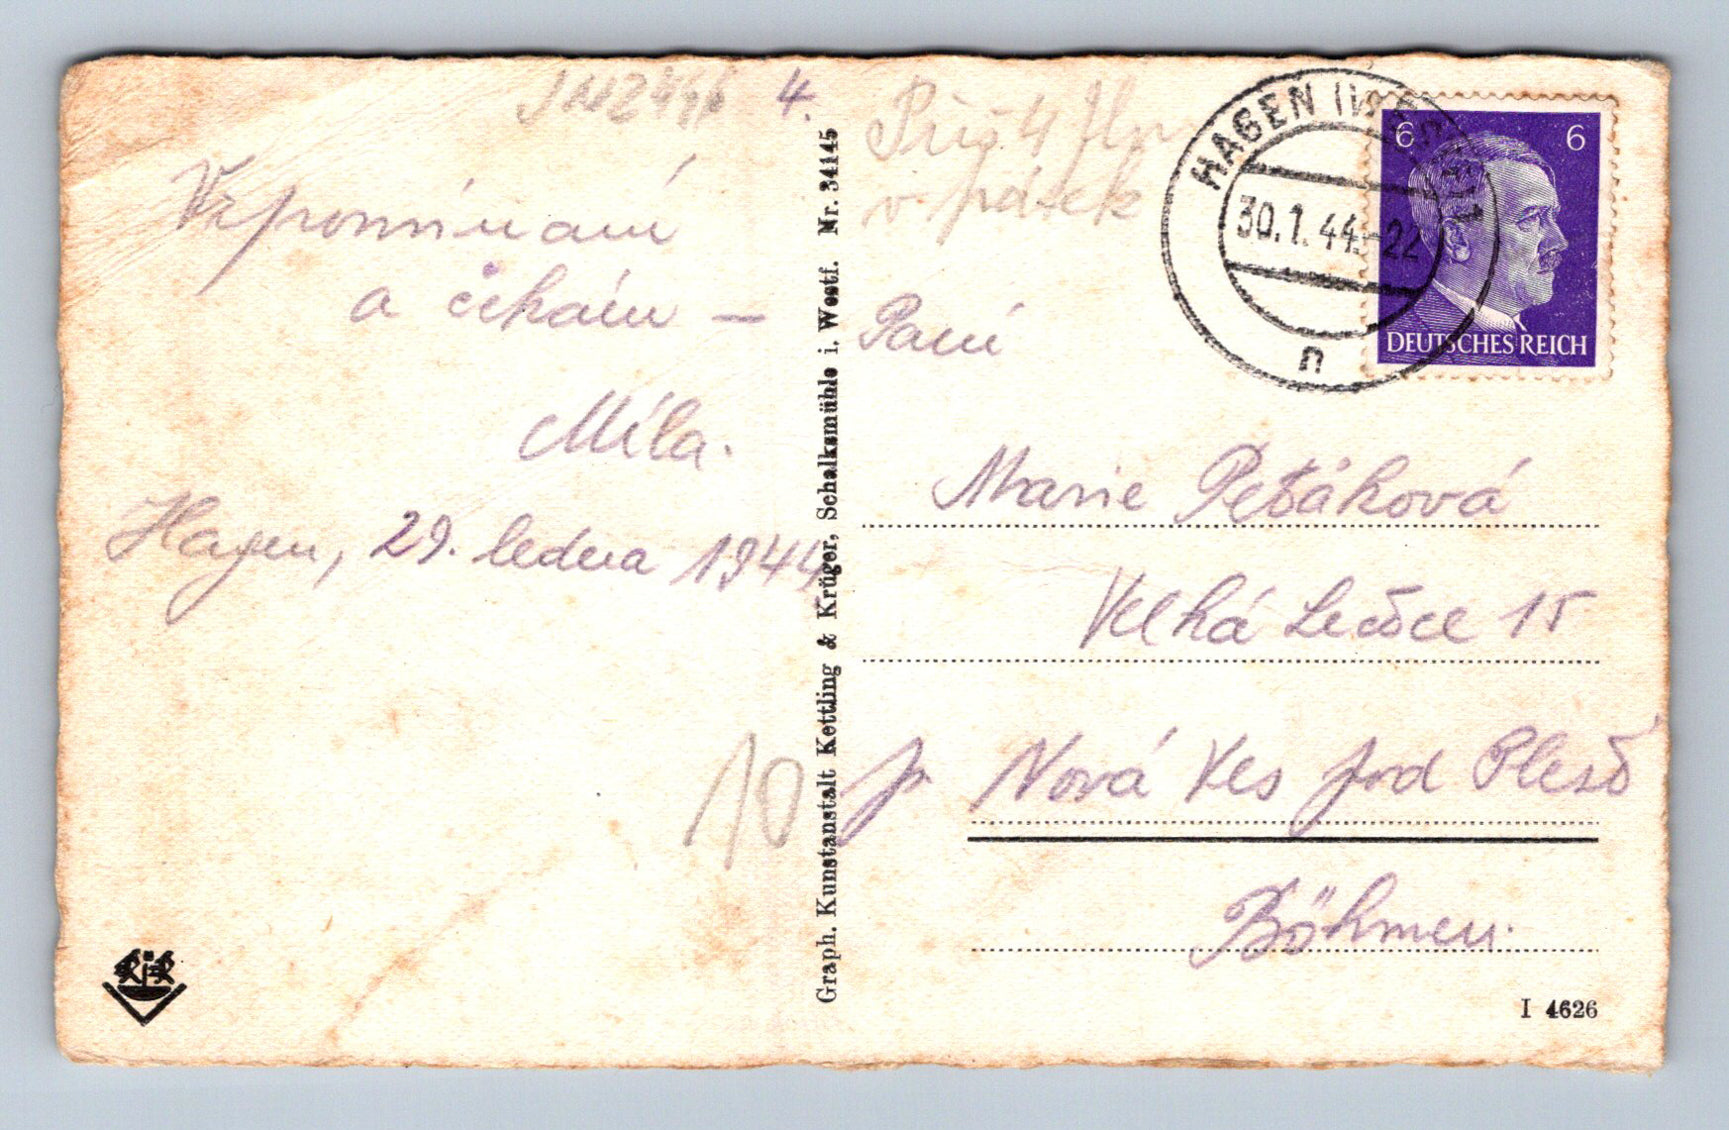 4.
Vzpomínám
a čekám —
Míla.
Hagen, 29. ledna 1944
10
Graph. Kunstanstalt Kettling & Krüger, Schalksmühle i. Westf. Nr. 34145
v pátek
HAGEN (WESTF) 1
30.1.44.-22
n
6 6
DEUTSCHES REICH
Paní
Marie Peťáková
Velká Lečice 15
p Nová Ves pod Pleší
Böhmen.
I 4626